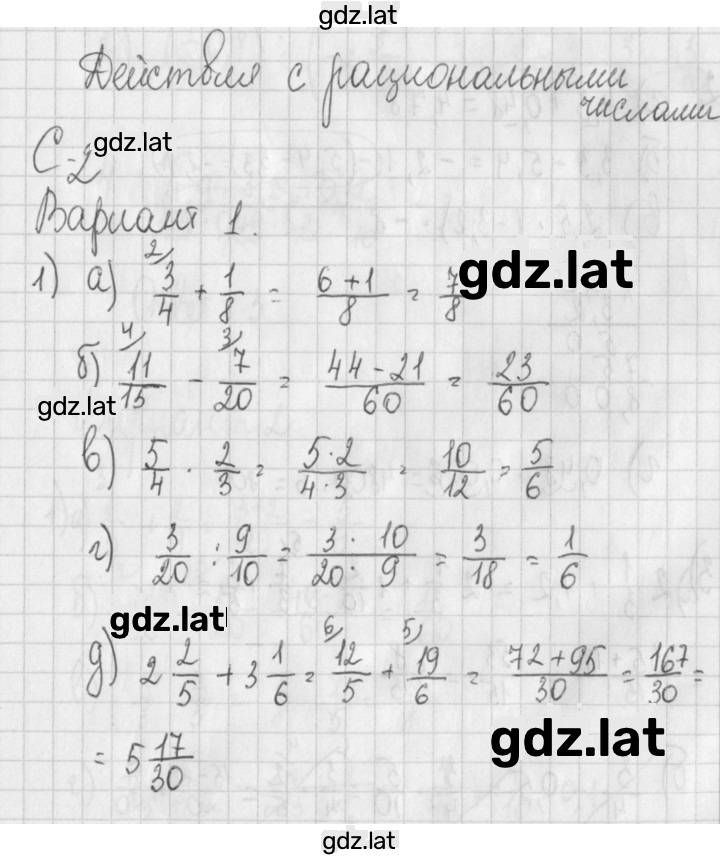 gdz.lat
Действия с рациональными
числами
gdz.lat
С-2
Вариант 1.
1) а) 3/4 (2/) + 1/8 = (6+1)/8 = 7/8
gdz.lat
б) 11/15 (4/) - 7/20 (3/) = (44-21)/60 = 23/60
gdz.lat
в) 5/4 · 2/3 = (5·2)/(4·3) = 10/12 = 5/6
г) 3/20 : 9/10 = (3· 10)/(20· 9) = 3/18 = 1/6
gdz.lat
д) 2 2/5 + 3 1/6 = 12/5 (6/) + 19/6 (5/) = (72+95)/30 = 167/30 =
gdz.lat
= 5 17/30
gdz.lat